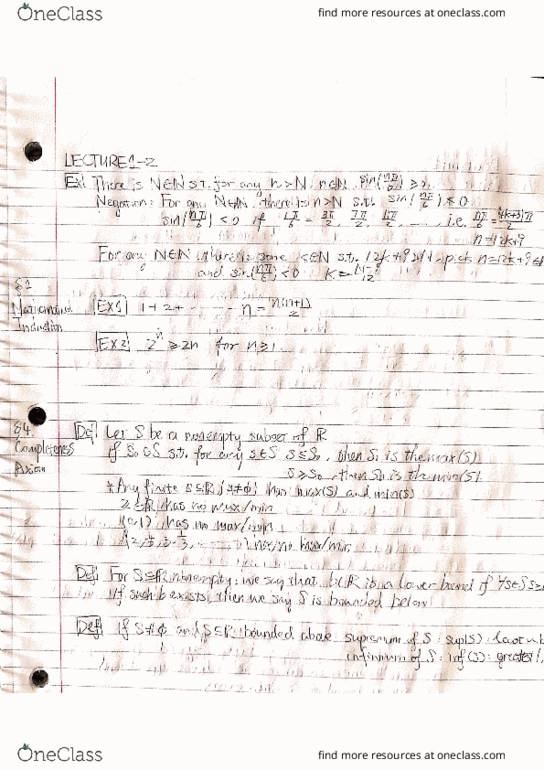 OneClass
find more resources at oneclass.com
LECTURE 1-2
Ex! There is N∈N s.t. for any n>N, n∈N, sin(nπ/6) ≥
Negation: For any N∈N, there is n>N s.t. sin(nπ/6) < 0
sin(nπ/6) < 0 if nπ/6 = 3π/2, 7π/2, ..., i.e. nπ/6 = (4k+3)π/2
n=12k+9
For any N∈N, there is some k∈N s.t. 12k+9>N, pick n=12k+9
and sin(nπ/6)<0
§1
Mathematical Induction
Ex1 1+2+ ... n = n(n+1)/2
Ex2 2^n ≥ 2n for n≥1
§4
Completeness Axiom
Def Let S be a nonempty subset of R
if S₀∈S s.t. for any s∈S s≤S₀, then S₀ is the max(S)
s≥S₀, then S₀ is the min(S)
*Any finite S⊆R (S≠∅) has max(S) and min(S)
Z⊆R has no max/min
(0,1) has no max/min
no max/min
Def For S⊆R nonempty, we say that b∈R is a lower bound if ∀s∈S
If such b exists, then we say S is bounded below
Def If S≠∅ and S⊆R bounded above supremum of S: sup(S):
infimum of S: inf(S): greatest
OneClass
find more resources at oneclass.com